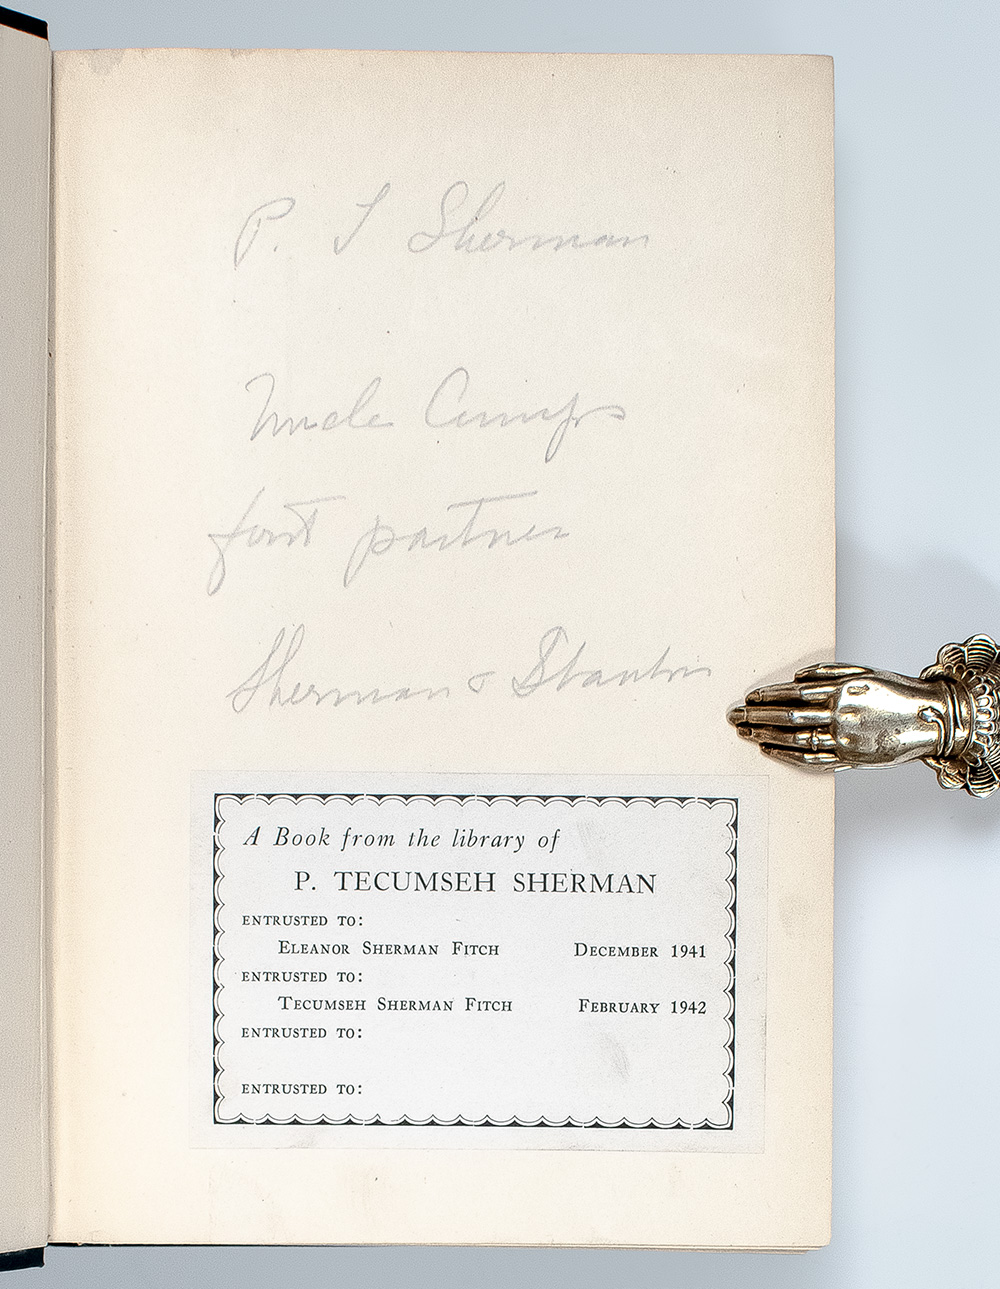 P. T Sherman
Uncle Cumps
first partner
Sherman & Stanton
A Book from the library of
P. TECUMSEH SHERMAN
ENTRUSTED TO:
ELEANOR SHERMAN FITCH DECEMBER 1941
ENTRUSTED TO:
TECUMSEH SHERMAN FITCH FEBRUARY 1942
ENTRUSTED TO:
ENTRUSTED TO: